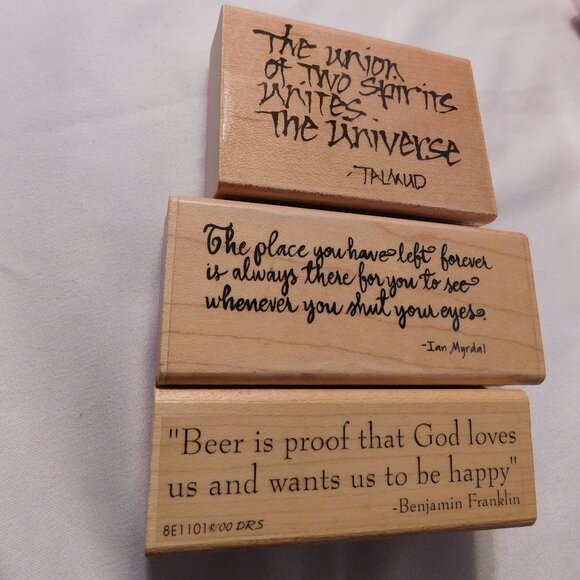 The union
of two spirits
unites
the universe
-TALMUD
The place you have left forever
is always there for you to see
whenever you shut your eyes.
-Ian Myrdal
"Beer is proof that God loves
us and wants us to be happy"
-Benjamin Franklin
8E1101©'00 DRS